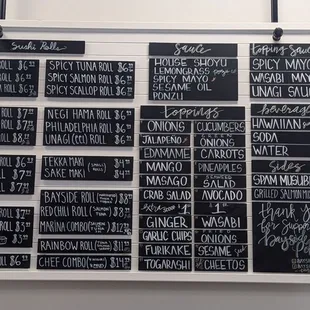 Sushi Rolls
ROLL $6
ROLL $6
ROLL $6
SPICY TUNA ROLL $6
SPICY SALMON ROLL $6
SPICY SCALLOP ROLL $6
ROLL $7
ROLL $7
ROLL $8
NEGI HAMA ROLL $6
PHILADELPHIA ROLL $6
UNAGI ROLL $6
ROLL $7
ROLL $7
TEKKA MAKI $4
SAKE MAKI $4
ROLL $7
ROLL $3
ROLL $3
ROLL $6
BAYSIDE ROLL $8
RED CHILI ROLL $8
MARINA COMBO $12
RAINBOW ROLL $11
CHEF COMBO $14
Sauce
HOUSE SHOYU
LEMONGRASS
SPICY MAYO
SESAME OIL
PONZU
Toppings
ONIONS
JALAPEÑO
EDAMAME
MANGO
MASAGO
CRAB SALAD
GINGER
GARLIC CHIPS
FURIKAKE
TOGARASHI
CUCUMBERS
ONIONS
CARROTS
PINEAPPLES
SALAD
AVOCADO
WASABI
ONIONS
SESAME
CHEETOS
Topping Sauce
SPICY MAYO
WASABI MAYO
UNAGI SAUCE
beverages
HAWAIIAN
SODA
WATER
Sides
SPAM MUSUBI
GRILLED SALMON
Thank you
for